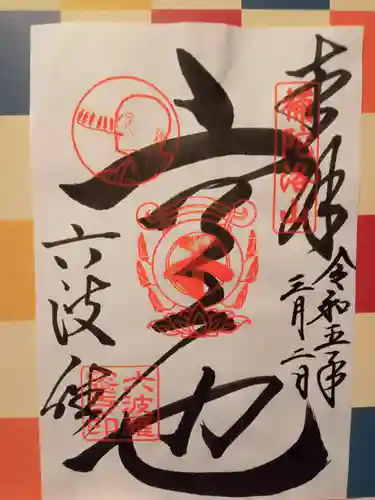 奉拝
補陀洛山
令和五年
三月二日
空也
六波羅
六波羅蜜寺印